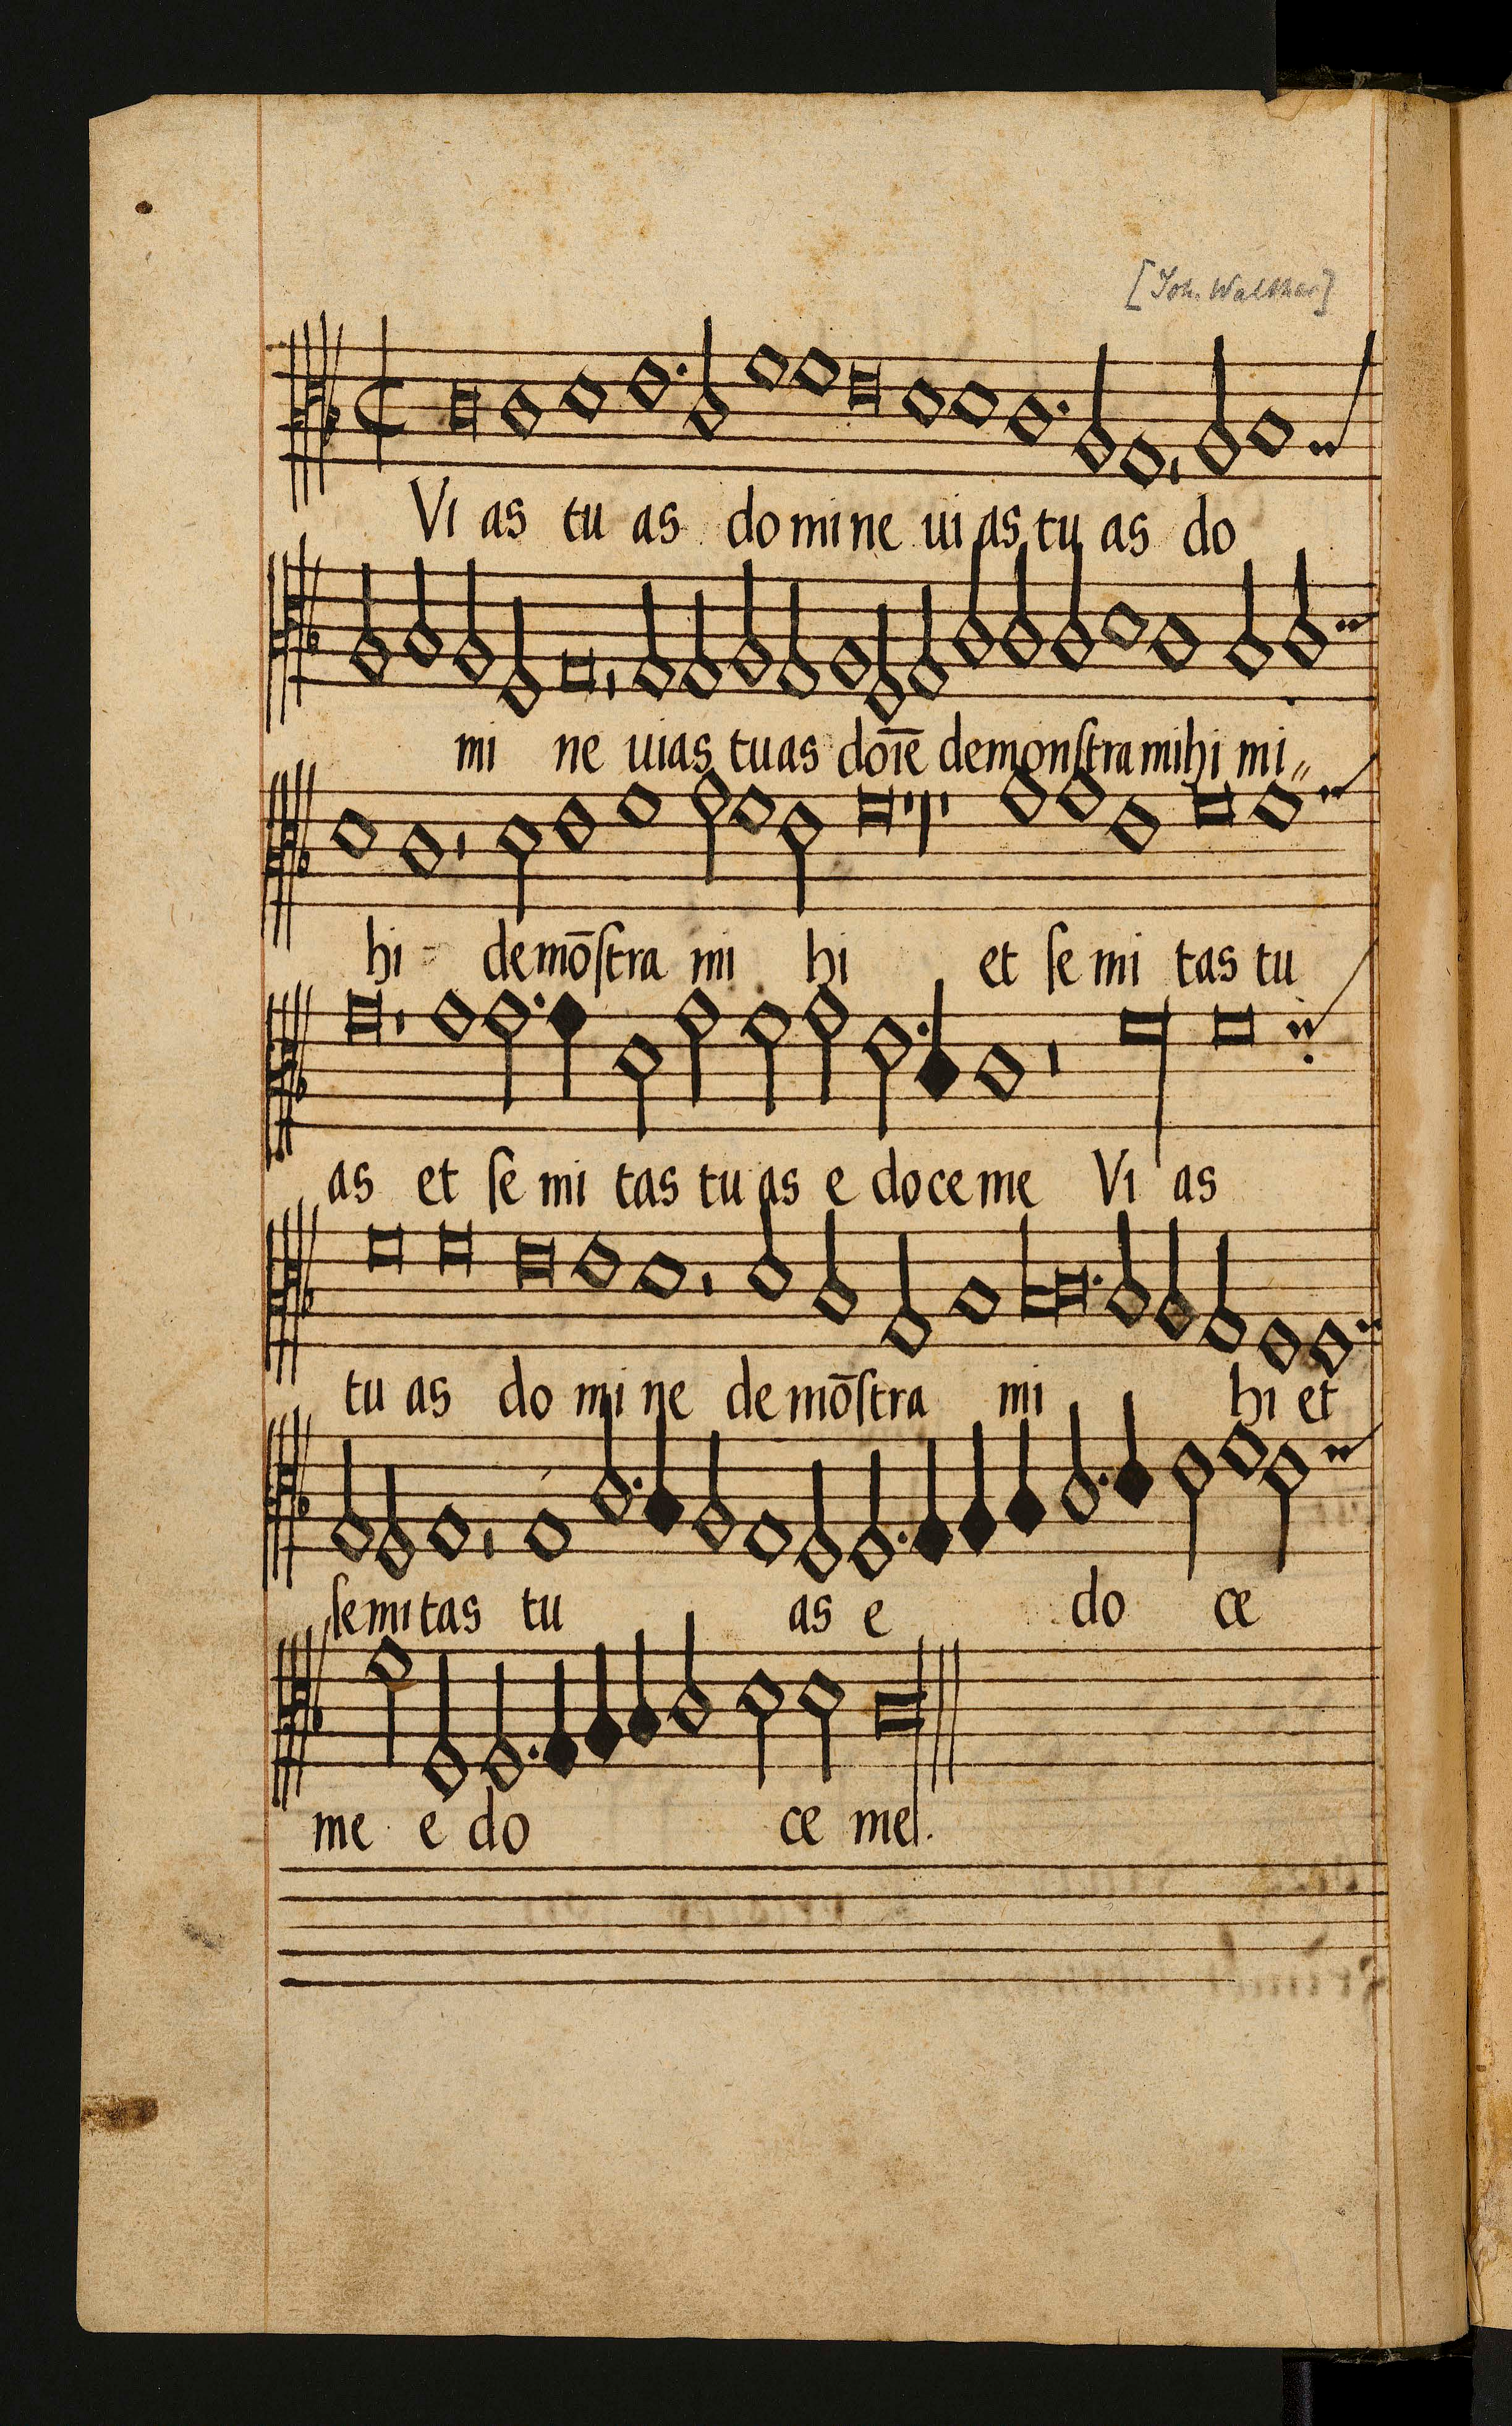 [Joh. Walther]
Vi as tu as do mi ne ui as tu as do
mi ne uias tuas doīe demonſtra mihi mi„
hi demōſtra mi hi et ſe mi tas tu
as et ſe mi tas tu as e do ce me Vi as
tu as do mi ne de mōſtra mi hi et
ſemi tas tu as e do ce
me e do ce me.